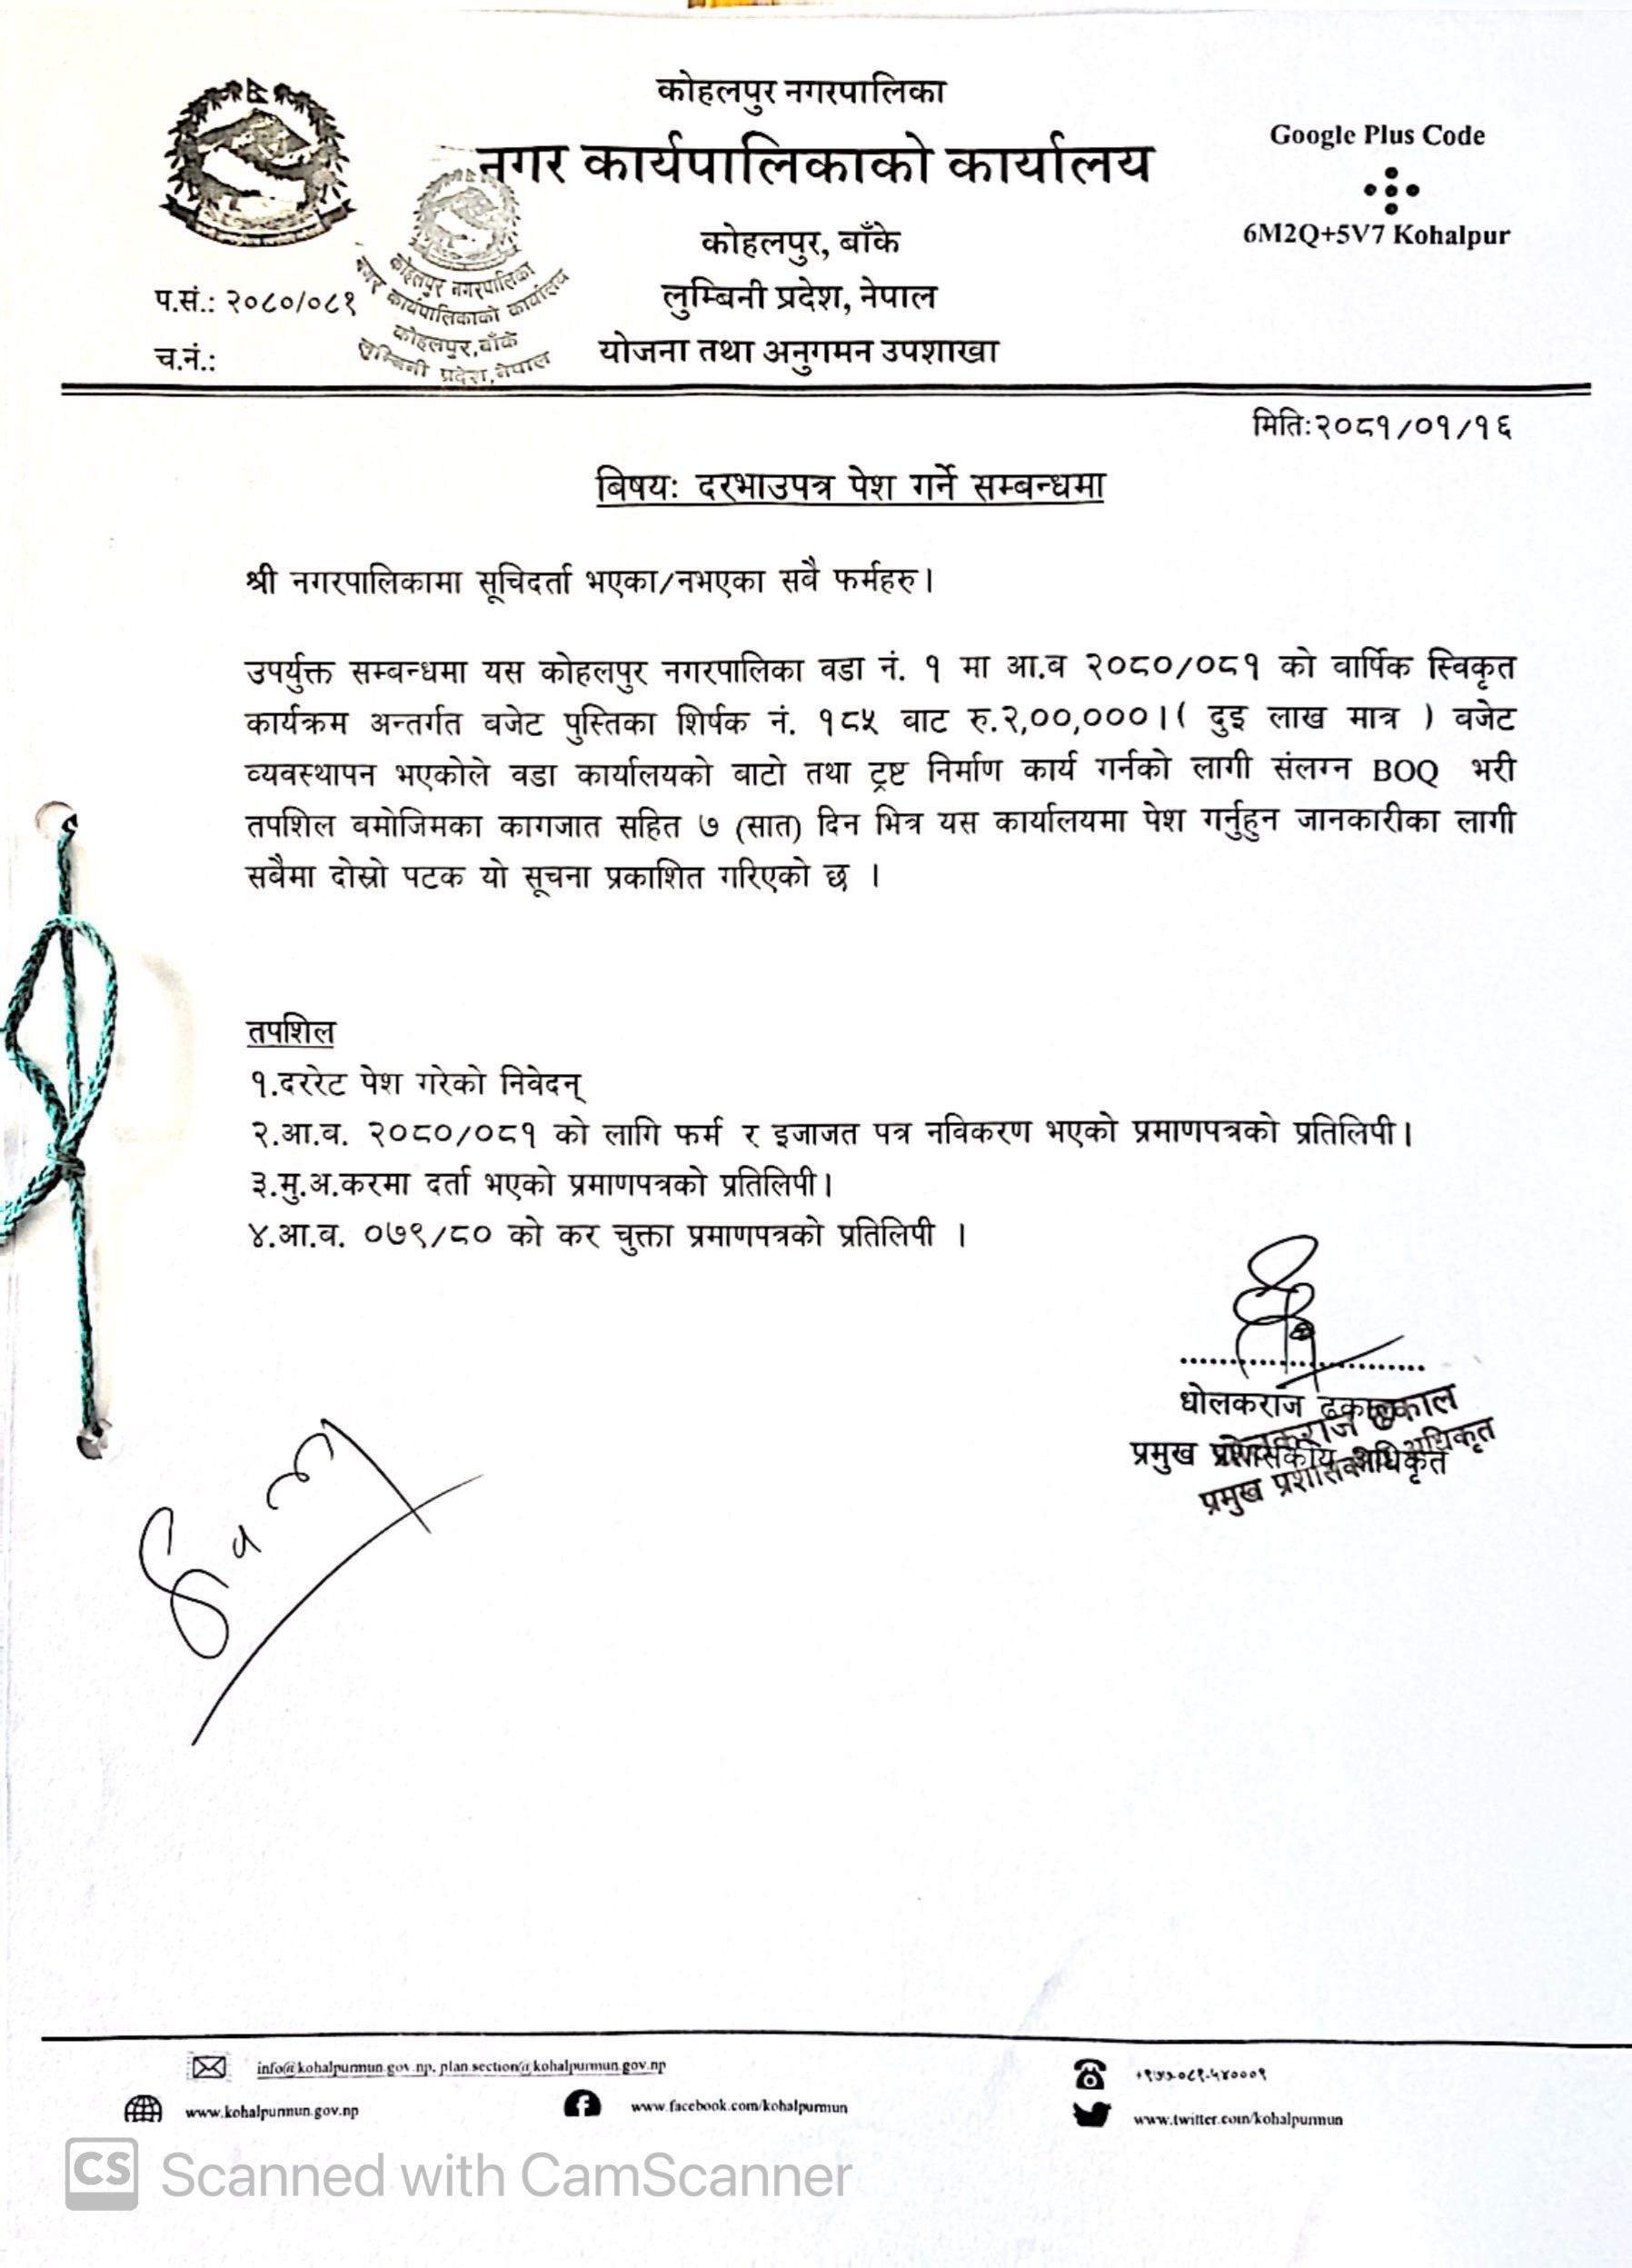 कोहलपुर नगरपालिका
नगर कार्यपालिकाको कार्यालय
कोहलपुर, बाँके
लुम्बिनी प्रदेश, नेपाल
योजना तथा अनुगमन उपशाखा
Google Plus Code
6M2Q+5V7 Kohalpur
प.सं.: २०८०/०८१
च.नं.:
कोहलपुर नगरपालिका
नगर कार्यपालिकाको कार्यालय
कोहलपुर,बाँके
लुम्बिनी प्रदेश,नेपाल
मितिः२०८१/०१/१६
बिषयः दरभाउपत्र पेश गर्ने सम्बन्धमा
श्री नगरपालिकामा सूचिदर्ता भएका/नभएका सबै फर्महरु।
उपर्युक्त सम्बन्धमा यस कोहलपुर नगरपालिका वडा नं. १ मा आ.ब २०८०/०८१ को वार्षिक स्विकृत
कार्यक्रम अन्तर्गत बजेट पुस्तिका शिर्षक नं. १८५ बाट रु.२,००,०००।( दुइ लाख मात्र ) बजेट
व्यवस्थापन भएकोले वडा कार्यालयको बाटो तथा ट्रष्ट निर्माण कार्य गर्नको लागी संलग्न BOQ भरी
तपशिल बमोजिमका कागजात सहित ७ (सात) दिन भित्र यस कार्यालयमा पेश गर्नुहुन जानकारीका लागी
सबैमा दोस्रो पटक यो सूचना प्रकाशित गरिएको छ ।
तपशिल
१.दररेट पेश गरेको निवेदन्
२.आ.ब. २०८०/०८१ को लागि फर्म र इजाजत पत्र नविकरण भएको प्रमाणपत्रको प्रतिलिपी।
३.मु.अ.करमा दर्ता भएको प्रमाणपत्रको प्रतिलिपी।
४.आ.ब. ०७९/८० को कर चुक्ता प्रमाणपत्रको प्रतिलिपी ।
..............................
धोलकराज ढकाल
प्रमुख प्रशासकीय अधिकृत
प्रमुख प्रशासकीय अधिकृत
info@kohalpurmun.gov.np, plan.section@kohalpurmun.gov.np
+९७७-०८१-५४०००१
www.kohalpurmun.gov.np
www.facebook.com/kohalpurmun
www.twitter.com/kohalpurmun
CS Scanned with CamScanner